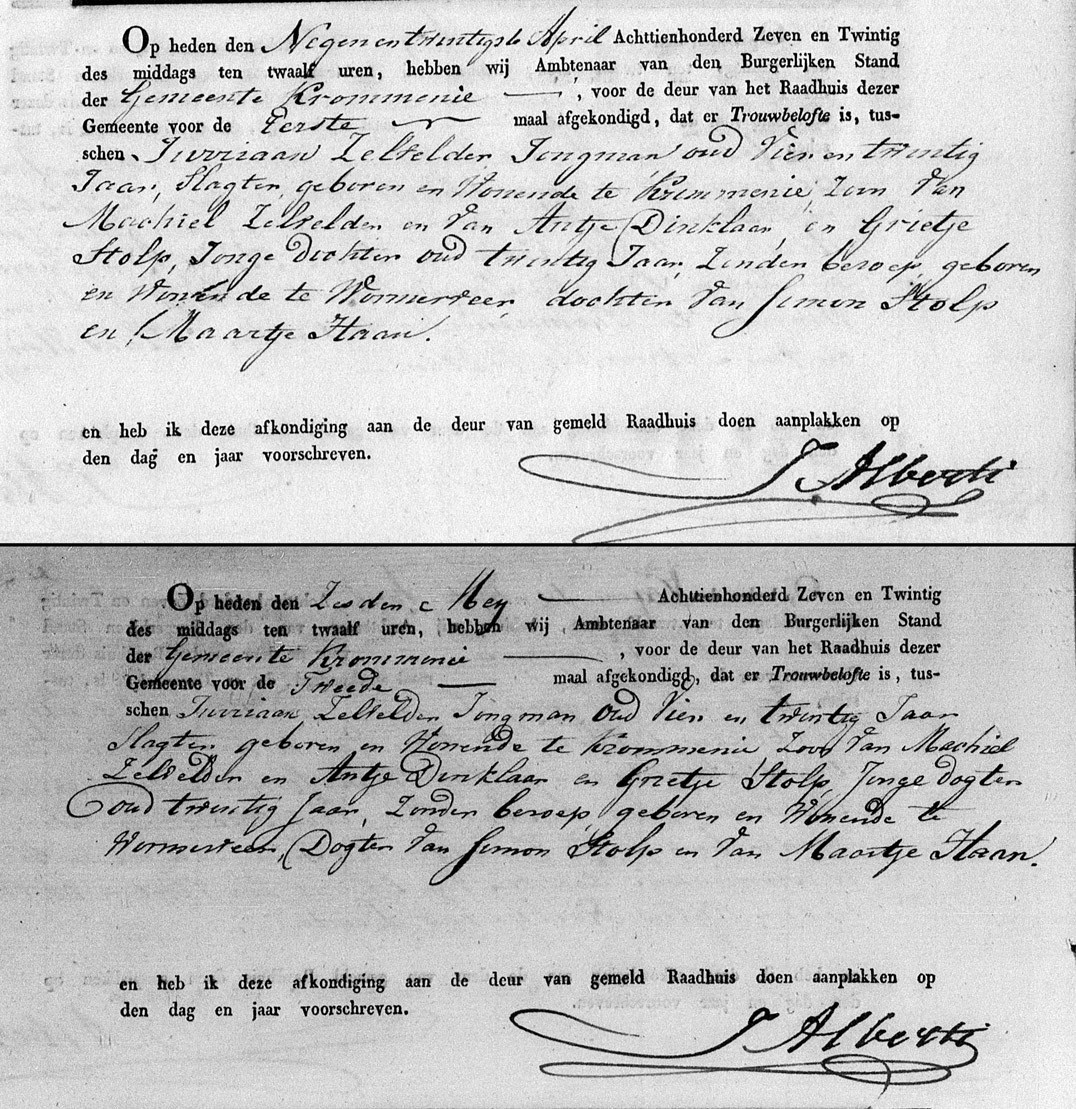 Op heden den Negenentwintigste April Achttienhonderd Zeven en Twintig
des middags ten twaalf uren, hebben wij Ambtenaar van den Burgerlijken Stand
der Gemeente Krommenie, voor de deur van het Raadhuis dezer
Gemeente voor de Eerste maal afgekondigd, dat er Trouwbelofte is, tus-
schen Jurriaan Zelvelder Jongman oud Vier en twintig
Jaar, Slagter, geboren en Wonende te Krommenie, Zoon Van
Machiel Zelvelder en Van Antje Dinklaar, en Grietje
Stolp, Jonge dochter oud twintig Jaar, Zonder beroep, geboren
en Wonende te Wormerveer, dochter Van Simon Stolp
en Maartje Haan.
en heb ik deze afkondiging aan de deur van gemeld Raadhuis doen aanplakken op
den dag en jaar voorschreven.
J Alberti
Op heden den Zesden Mey Achttienhonderd Zeven en Twintig
des middags ten twaalf uren, hebben wij Ambtenaar van den Burgerlijken Stand
der Gemeente Krommenie, voor de deur van het Raadhuis dezer
Gemeente voor de Tweede maal afgekondigd, dat er Trouwbelofte is, tus-
schen Jurriaan Zelvelder Jongman oud Vier en twintig Jaar
Slagter, geboren en Wonende te Krommenie Zoon Van Machiel
Zelvelder en Antje Dinklaar en Grietje Stolp, Jonge dogter
oud twintig Jaar, Zonder beroep, geboren en Wonende te
Wormerveer, Dogter Van Simon Stolp en Van Maartje Haan.
en heb ik deze afkondiging aan de deur van gemeld Raadhuis doen aanplakken op
den dag en jaar voorschreven.
J Alberti